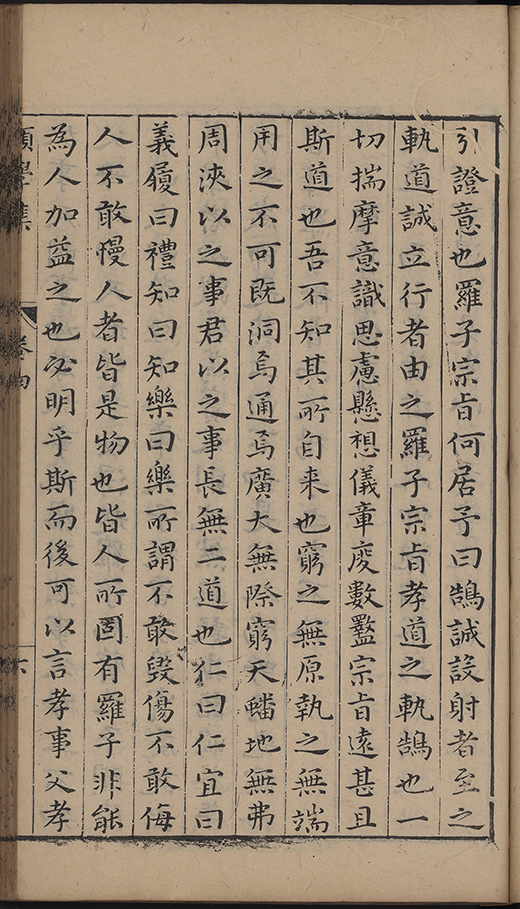 引證意也羅子宗旨何居予曰鵠誠設射者至之
軌道誠立行者由之羅子宗旨孝道之軌鵠也一
切揣摩意識思慮懸想儀章度數盭宗旨遠甚且
斯道也吾不知其所自来也窮之無原執之無端
用之不可既洞焉通焉廣大無際窮天蟠地無弗
周浹以之事君以之事長無二道也仁曰仁宜曰
義履曰禮知曰知樂曰樂所謂不敢毀傷不敢侮
人不敢慢人者皆是物也皆人所固有羅子非能
為人加益之也必明乎斯而後可以言孝事父孝
學集
卷四
六